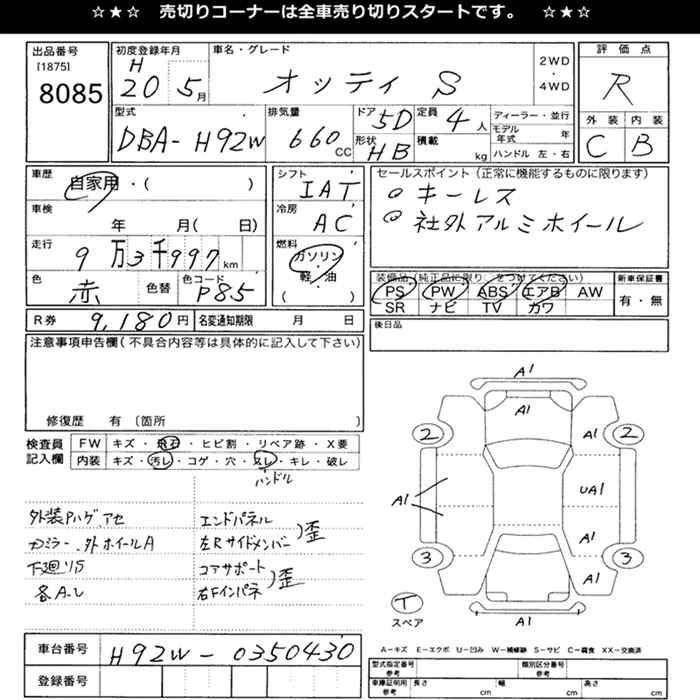 ☆★☆ 売切りコーナーは全車売り切りスタートです。 ☆★☆
出品番号
[1875]
8085
初度登録年月
H
20 5月
車名・グレード
オッティ S
2WD
・
4WD
評価点
R
外装 内装
C B
型式
DBA-H92W
排気量
660 CC
ドア 5D
形状 HB
定員 4人
積載 kg
ディーラー・並行
モデル年式 年
ハンドル 左・右
車歴
自家用・( )
車検
年 月( 日)
走行
9万3千997km
色
赤
色替
色コード
P85
シフト
IAT
冷房
AC
燃料
ガソリン・
軽・油
( )
セールスポイント (正常に機能するものに限ります)
キーレス
社外アルミホイール
装備品(純正品に限り○をつけてください)
PS PW ABS エアB AW
SR ナビ TV カワ
新車保証書
有・無
後日品
R券 9,180円
名変通知期限 月 日
注意事項申告欄(不具合内容等は具体的に記入して下さい)
修復歴 有 〔箇所 〕
検査員
記入欄
FW キズ・飛石・ヒビ割・リペア跡・X要
内装 キズ・汚レ・コゲ・穴・スレ・キレ・破レ
ハンドル
外装Pハゲ、アセ
Dミラー、外ホイールA
下廻りS
各A-U
エンドパネル
左Rサイドメンバー 歪
コアサポート
右Fインパネ 歪
車台番号 H92W-0350430
登録番号
A1
A1
A1
2
2
A1
UA1
A1
3
3
A1
T
スペア
A1
A-キズ E-エクボ U-凹み W-補修跡 S-サビ C-腐食 XX-交換済
型式指定番号
参考
類別区分番号
参考
車庫証明用
参考
長さ cm 幅 cm 高さ cm